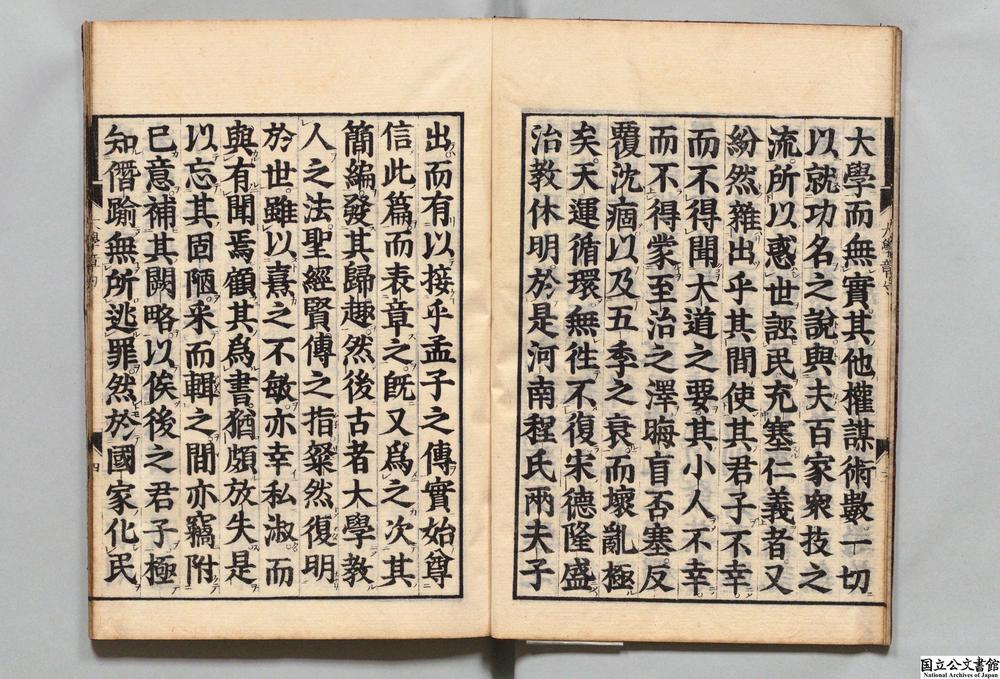 大學而無實其他權謀術數一切
以就功名之說與夫百家衆技之
流所以惑世誣民充塞仁義者又
紛然雜出乎其間使其君子不幸
而不得聞大道之要其小人不幸
而不得蒙至治之澤晦盲否塞反
覆沈痼以及五季之衰而壞亂極
矣天運循環無徃不復宋德隆盛
治教休明於是河南程氏兩夫子
出而有以接乎孟子之傳實始尊
信此篇而表章之既又爲之次其
簡編發其歸趣然後古者大學教
人之法聖經賢傳之指粲然復明
於世雖以熹之不敏亦幸私淑而
與有聞焉顧其爲書猶頗放失是
以忘其固陋采而輯之間亦竊附
已意補其闕略以俟後之君子極
知僭踰無所逃罪然於國家化民
四
国立公文書館
National Archives of Japan